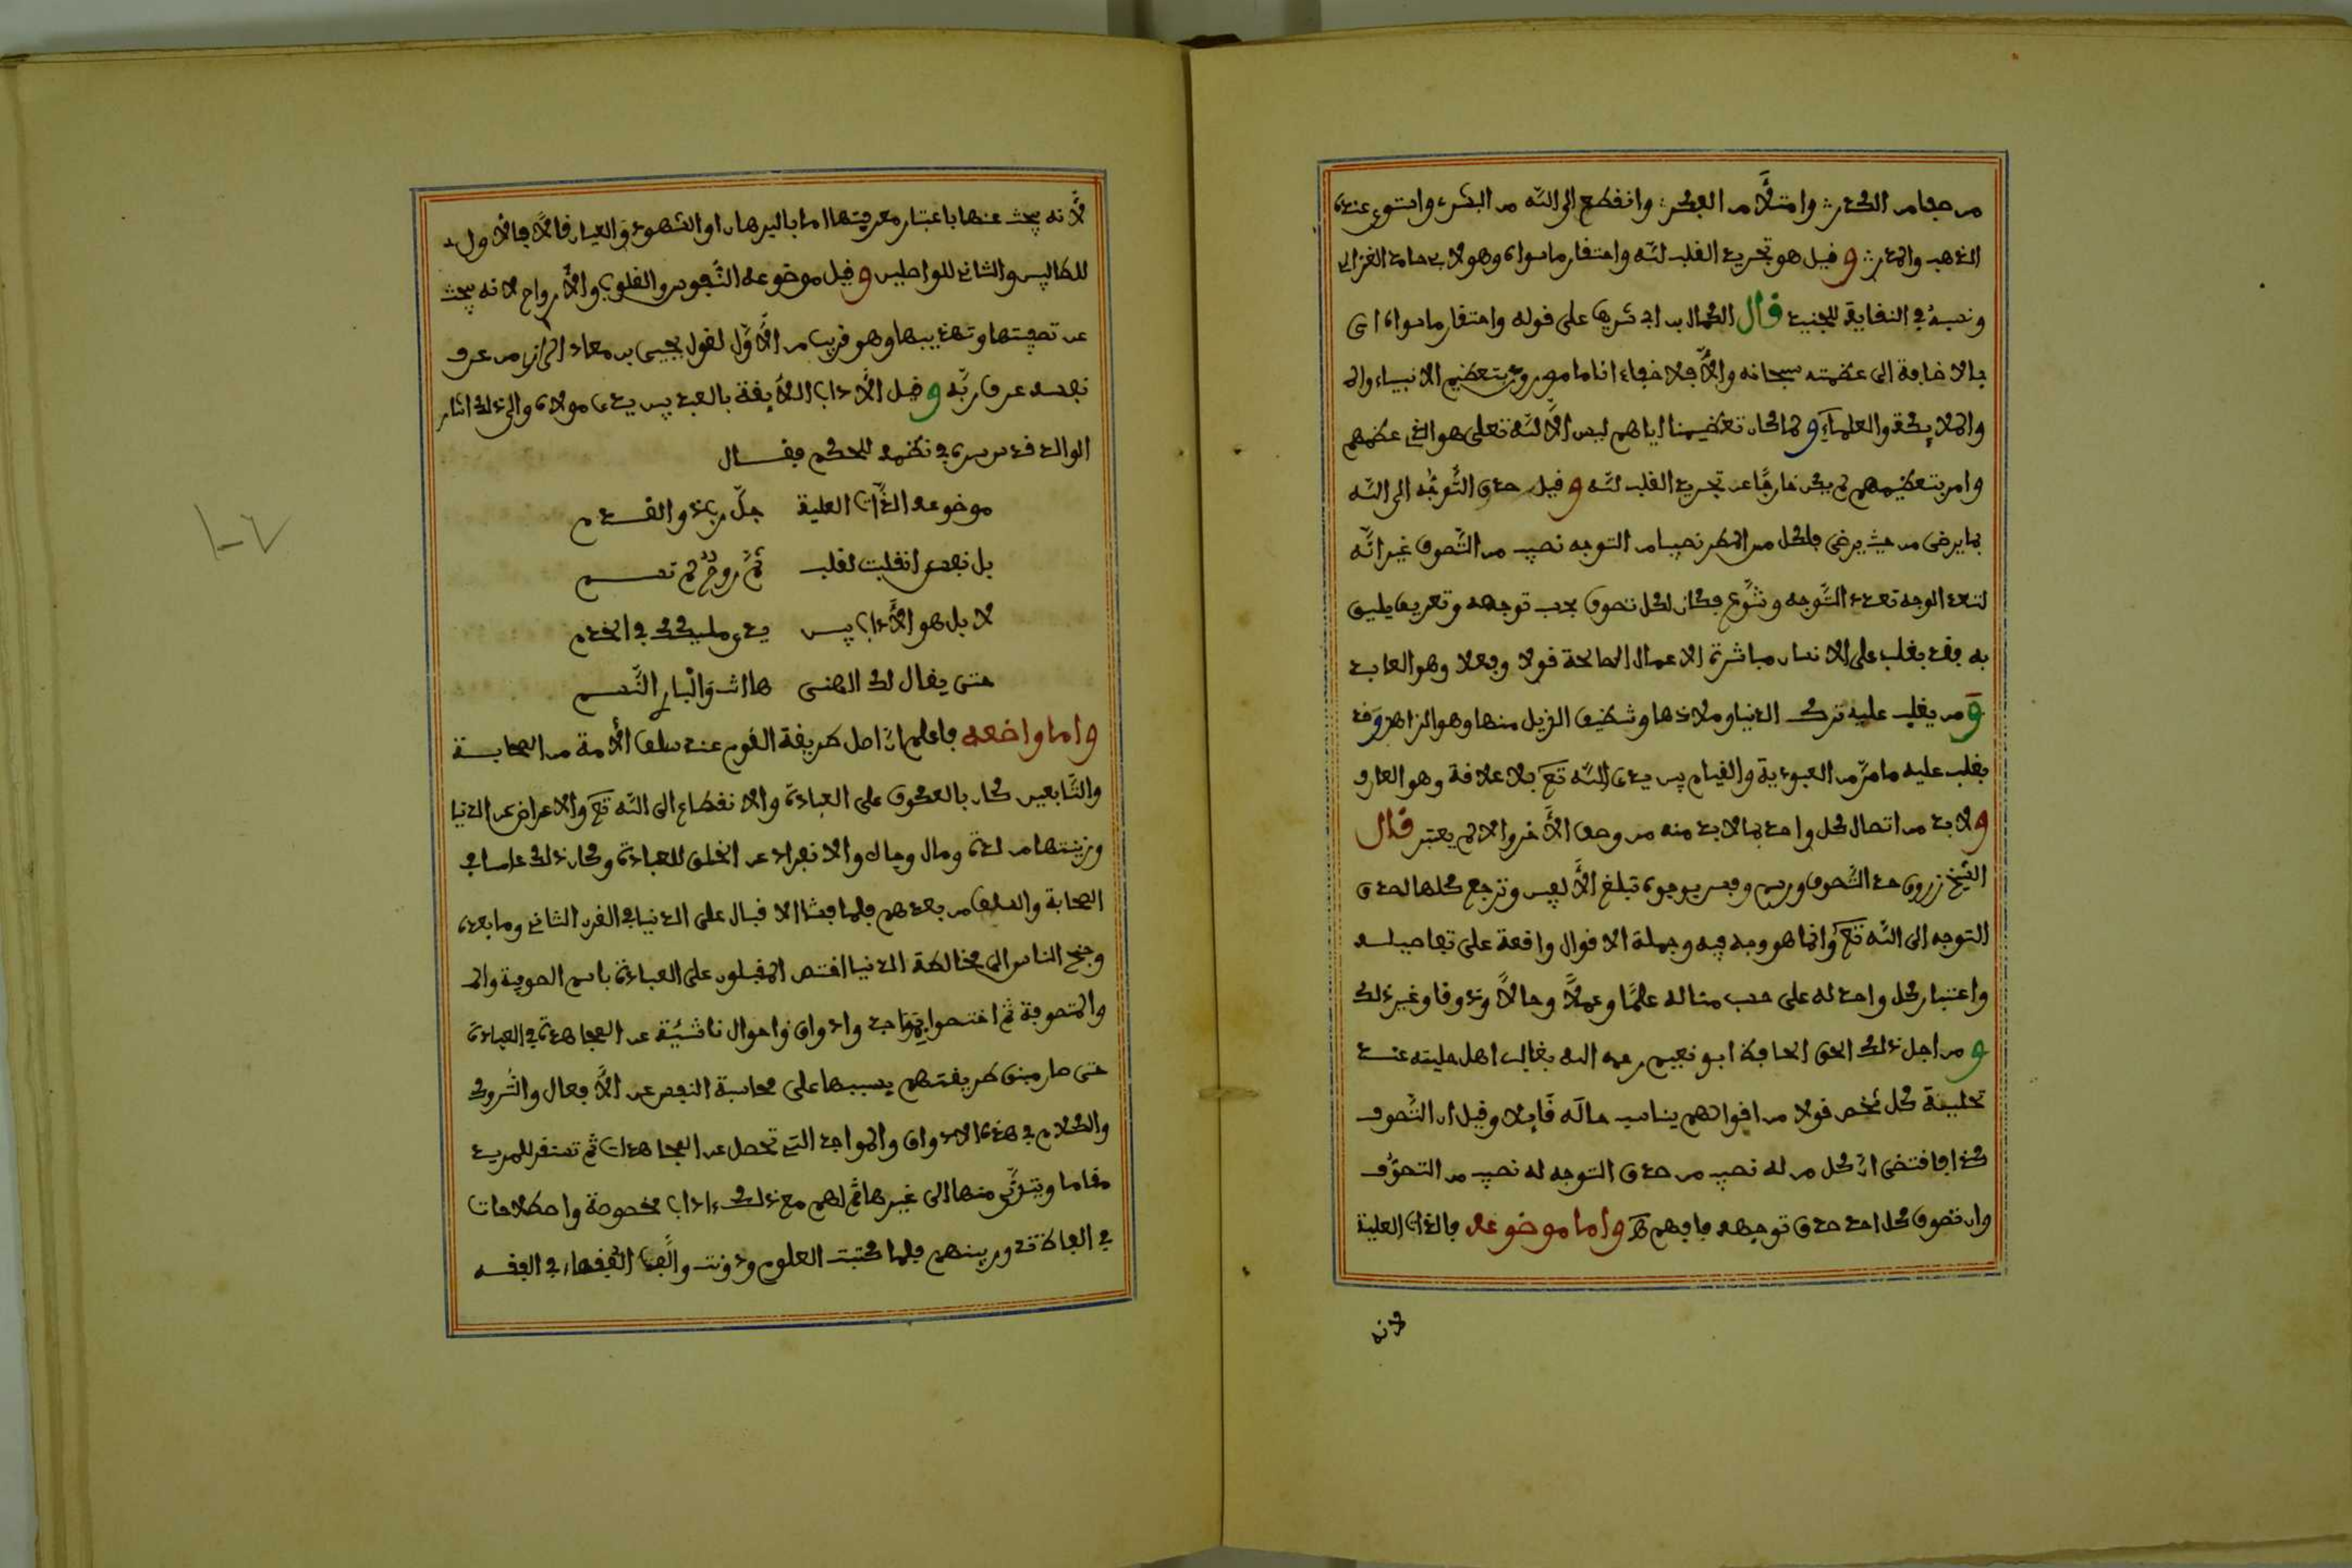 من صفا من الكدر وامتلأ من الفكر وانقطع الى الله من البشر واستوى عنده
الذهب والمدر وقيل هو تجريد القلب لله واحتقار ما سواه وهو لابي حامد الغزالي
ونسبه في النقاية للجنيد قال الكمال بن ابي شريف على قوله واحتقار ما سواه اي
بالاضافة الى عظمته سبحانه والا فلا خفاء انا مامورون بتعظيم الانبياء وال
والملايكة والعلماء ولما كان تعظيمنا اياهم ليس الا لله تعلى هو الذي عظمهم
وامر بتعظيمهم لم يكن خارجا عن تجريد القلب لله وقيل صدق التوجه الى الله
بما يرضى من حيث يرضى فلكل من اعطي نصيبا من التوجه نصيب من التصوف غير انه
لتعدد الوجه تعدد التوجه وتنوع فكان لكل تصوف بحسب توجهه وتعريف يليق
به فقد يغلب على الانسان مباشرة الاعمال الصالحة قولا وفعلا وهو العابد
ومن يغلب عليه ترك الدنيا وملاذها وشظيف النزيل منها وهو الزاهد وقد
يغلب عليه ما مر من العبودية والقيام بين يدي الله تع بلا علاقة وهو العارف
ولا بد من اتصال كل واحد بما لا بد منه من وصف الآخر والا لم يعتبر قال
الشيخ زروق حد التصوف ورسم وفسر بوجوه تبلغ الألفين وترجع كلها لصدق
التوجه الى الله تع وانما هو وجه فيه وجملة الاقوال واقعة على تفاصيله
واعتبار كل واحد له على حسب مناله علما وعملا وحالا وذوقا وغير ذلك
ومن اجل ذلك الحق الحافظ ابو نعيم رحمه الله بغالب اهل حليته عند
تحلية كل شخص قولا من اقوالهم يناسب حاله قايلا وقيل ان التصوف
كذا فاقتضى ان كل من له نصيب من صدق التوجه له نصيب من التصوف
وان تصوف كل احد صدق توجهه فافهم واما موضوعه فالذات العلية
لانه
لأنه يبحث عنها باعتبار معرفتها اما بالبرهان او الشهود والعيان فالأول
للطالبين والثاني للواصلين وقيل موضوعه النفوس والقلوب والأرواح لانه يبحث
عن تصفيتها وتهذيبها وهو قريب من الأول لقول يحيى بن معاذ الرازي من عرف
نفسه عرف ربه وقيل الآداب اللايقة بالعبد بين يدي مولاه والى ذلك اشار
الوالد قدس سره في نظمه للحكم فقال
موضوعه الذات العلية جل ربي ذو القدم
بل نفس انقلبت لقلب ثم روح لم تسم
لا بل هو الآداب بين يدي مليكك في الخدم
حتى يقال لك الهنى ها انت والباري النسم
واما واضعه فاعلم ان اصل طريقة القوم عند سلف الأمة من الصحابة
والتابعين كان بالعكوف على العبادة والانقطاع الى الله تع والاعراض عن الدنيا
وزينتها من لذة ومال وجاه والانفراد عن الخلق للعبادة وكان ذلك عاما في
الصحابة والسلف من بعدهم فلما فشا الاقبال على الدنيا في القرن الثاني وما بعده
وجنح الناس الى مخالطة الدنيا اختص المقبلون على العبادة باسم الصوفية وال
والمتصوفة ثم اختصوا بمواجد واذواق واحوال ناشئة عن المجاهدة في العبادة
حتى صار مبنى طريقتهم بسببها على محاسبة النفس عن الأفعال والتروك
والكلام في هذه الاذواق والمواجد التي تحصل عن المجاهدات ثم تستقر للمريد
مقاما ويترقى منها الى غيرها ثم لهم مع ذلك ءاداب مخصوصة واصطلاحات
في الفاظ تدور بينهم فلما كتبت العلوم ودونت وألف الفقهاء في الفقه